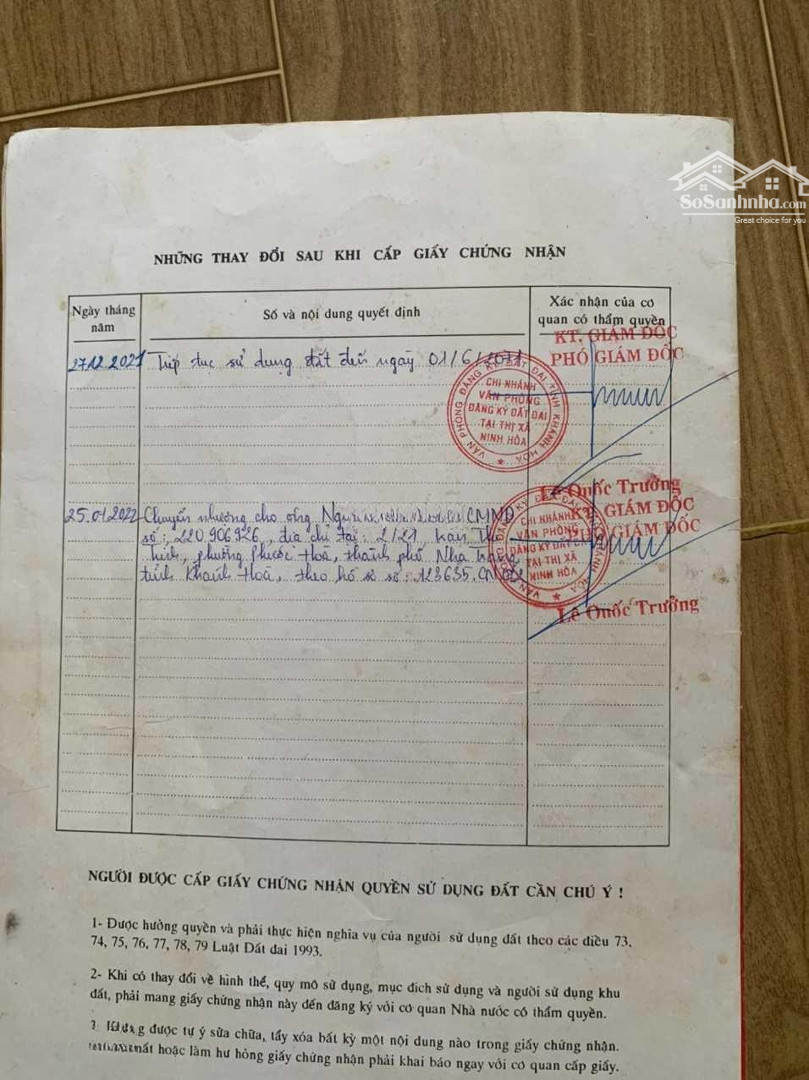 SoSanhnha.com
Great choice for you
NHỮNG THAY ĐỔI SAU KHI CẤP GIẤY CHỨNG NHẬN
Ngày tháng năm
Số và nội dung quyết định
Xác nhận của cơ quan có thẩm quyền
KT. GIÁM ĐỐC
PHÓ GIÁM ĐỐC
27.12.2021 Tiếp tục sử dụng đất đến ngày 01/6/2071
VĂN PHÒNG ĐĂNG KÝ ĐẤT ĐAI TỈNH KHÁNH HOÀ
CHI NHÁNH
VĂN PHÒNG
ĐĂNG KÝ ĐẤT ĐAI
TẠI THỊ XÃ
NINH HÒA
Lê Quốc Trưởng
KT. GIÁM ĐỐC
PHÓ GIÁM ĐỐC
25.01.2022 Chuyển nhượng cho ông CMND
số: 220906926, địa chỉ tại: 2/21
phường Phước Hoà, thành phố Nha Trang
tỉnh Khánh Hoà, theo hồ sơ số: 123635.
CHI NHÁNH
VĂN PHÒNG
ĐĂNG KÝ ĐẤT ĐAI
TẠI THỊ XÃ
NINH HÒA
Lê Quốc Trưởng
NGƯỜI ĐƯỢC CẤP GIẤY CHỨNG NHẬN QUYỀN SỬ DỤNG ĐẤT CẦN CHÚ Ý !
1- Được hưởng quyền và phải thực hiện nghĩa vụ của người sử dụng đất theo các điều 73,
74, 75, 76, 77, 78, 79 Luật Đất đai 1993.
2- Khi có thay đổi về hình thể, quy mô sử dụng, mục đích sử dụng và người sử dụng khu
đất, phải mang giấy chứng nhận này đến đăng ký với cơ quan Nhà nước có thẩm quyền.
3- Không được tự ý sửa chữa, tẩy xóa bất kỳ một nội dung nào trong giấy chứng nhận.
mất hoặc làm hư hỏng giấy chứng nhận phải khai báo ngay với cơ quan cấp giấy.